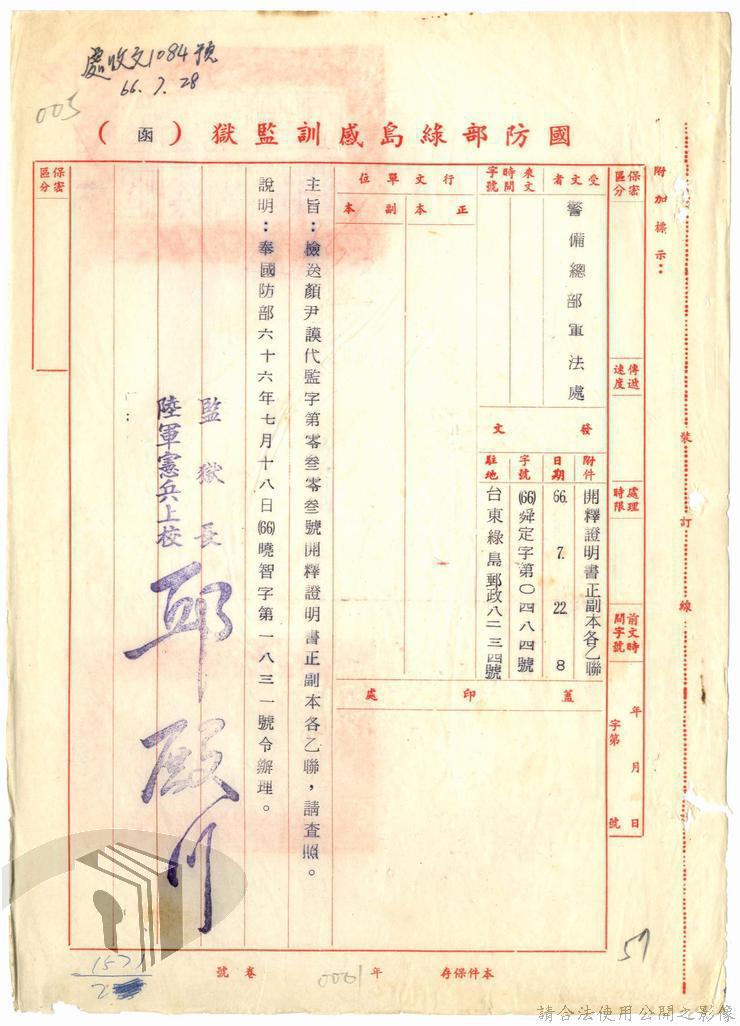 處收文1084號
66.7.28
005
國防部綠島感訓監獄（函）
附加標示：
裝訂線
保密區分
傳遞速度
處理時限
前文時間字號
年 月 日
字第 號
受文者
警備總部軍法處
來文
時間
字號
行文單位
正本
副本
發文
附件
開釋證明書正副本各乙聯
日期
66. 7. 22. 8
字號
(66)舜定字第〇四八四號
駐地
台東綠島郵政八二三四號
蓋印處
主旨：檢送顏尹謨代監字第零叁零叁號開釋證明書正副本各乙聯，請查照。
說明：奉國防部六十六年七月十八日(66)曉智字第一八三一號令辦理。
監獄長
陸軍憲兵上校
保密區分
本件保存 年 卷 號
0001
57
157
請合法使用公開之影像